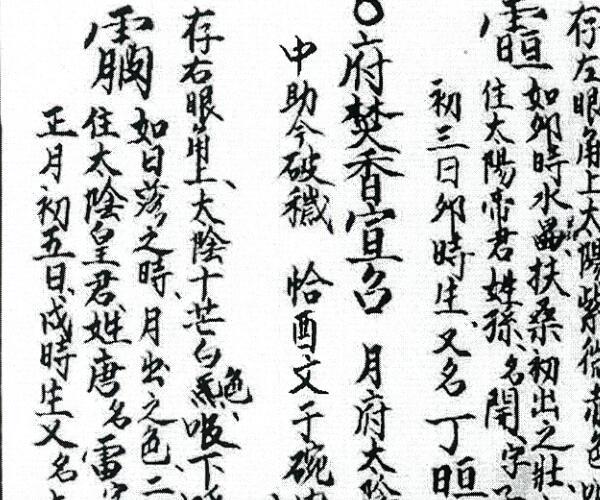 存左眼角上太陽紫微赤色
如卯時水晶扶桑初出之壯
住太陽帝君姓孫名開字
初三日卯時生又名丁晅
○府焚香宣名 月府太陰
中助今破穢 恰酉文于碗
存右眼角上太陰十芒白色吸下
如日落之時月出之色二
住太陰皇君姓唐名雷字
正月初五日戌時生又名